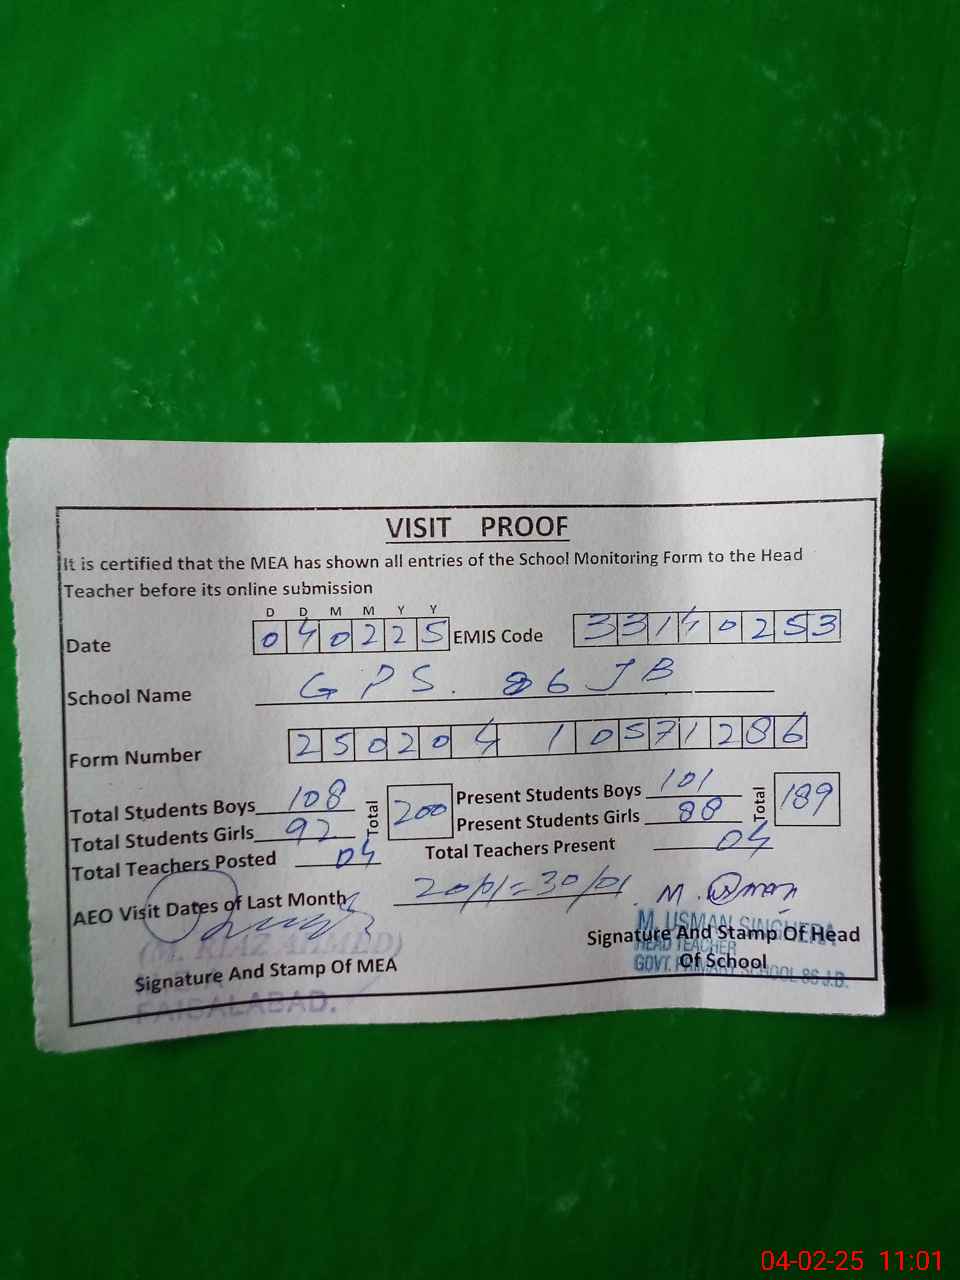 VISIT PROOF
It is certified that the MEA has shown all entries of the School Monitoring Form to the Head
Teacher before its online submission
D D M M Y Y
Date 040225 EMIS Code 33140253
School Name GPS. 86 JB
Form Number 250204 10571286
Total Students Boys 108 Total 200 Present Students Boys 101 Total 189
Total Students Girls 92 Present Students Girls 88
Total Teachers Posted 04 Total Teachers Present 04
AEO Visit Dates of Last Month 20/01=30/01. M. Usman
(M. RIAZ AHMED) M. USMAN SINGHERA
Signature And Stamp Of MEA Signature And Stamp Of Head
HEAD TEACHER
Of School
GOVT. PRIMARY SCHOOL 86 J.B.
FAISALABAD.
04-02-25 11:01